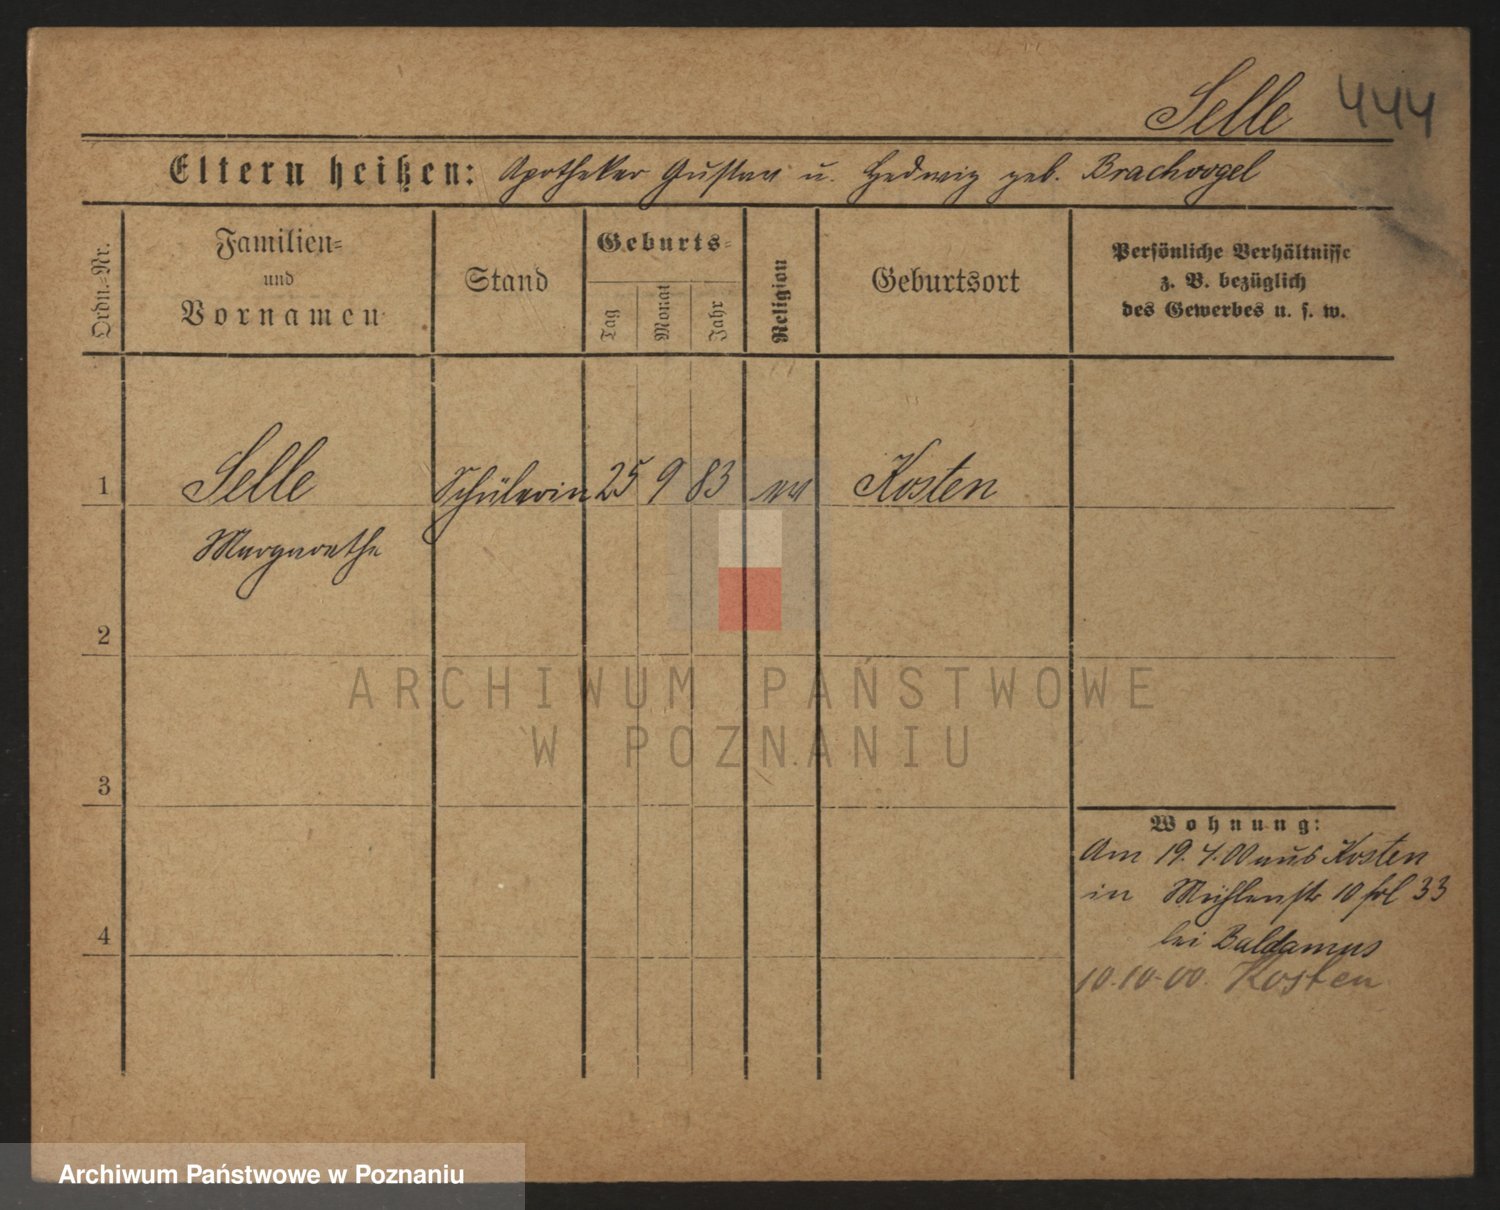 Selle 444
Eltern heißen: Apotheker Gustav u. Hedwig geb. Brachvogel
Ordn.-Nr.
Familien-
und
Vornamen
Stand
Geburts-
Tag
Monat
Jahr
Religion
Geburtsort
Persönliche Verhältnisse
z. B. bezüglich
des Gewerbes u. s. w.
1 Selle Schülerin 25 9 83 ev Kosten
Margarethe
2
ARCHIWUM PAŃSTWOWE
W POZNANIU
3
Wohnung:
Am 19.4.00 aus Kosten
in Mühlenstr 10 33
4
bei Baldamus
10.10.00. Kosten
Archiwum Państwowe w Poznaniu